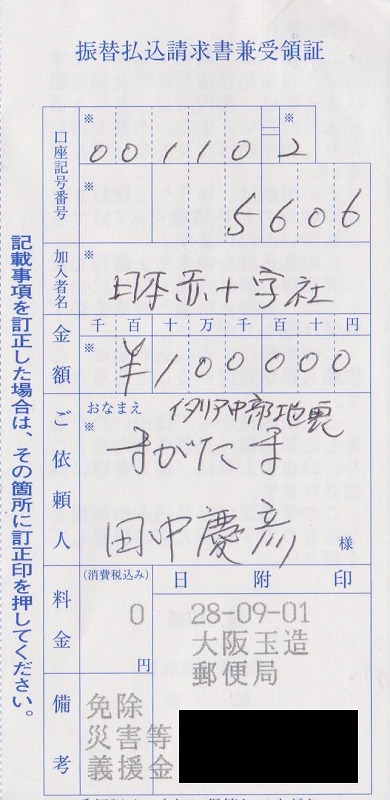 振替払込請求書兼受領証
口座記号番号
※ ※
00110=2
※
5606
加入者名
※
日本赤十字社
金額
千百十万千百十円
※
¥100000
ご依頼人
おなまえ
※
イタリア中部地震
まがたま
田中慶彦 様
料金
(消費税込み)
0
円
日附印
28-09-01
大阪玉造
郵便局
備考
免除
災害等
義援金
記載事項を訂正した場合は、その箇所に訂正印を押してください。